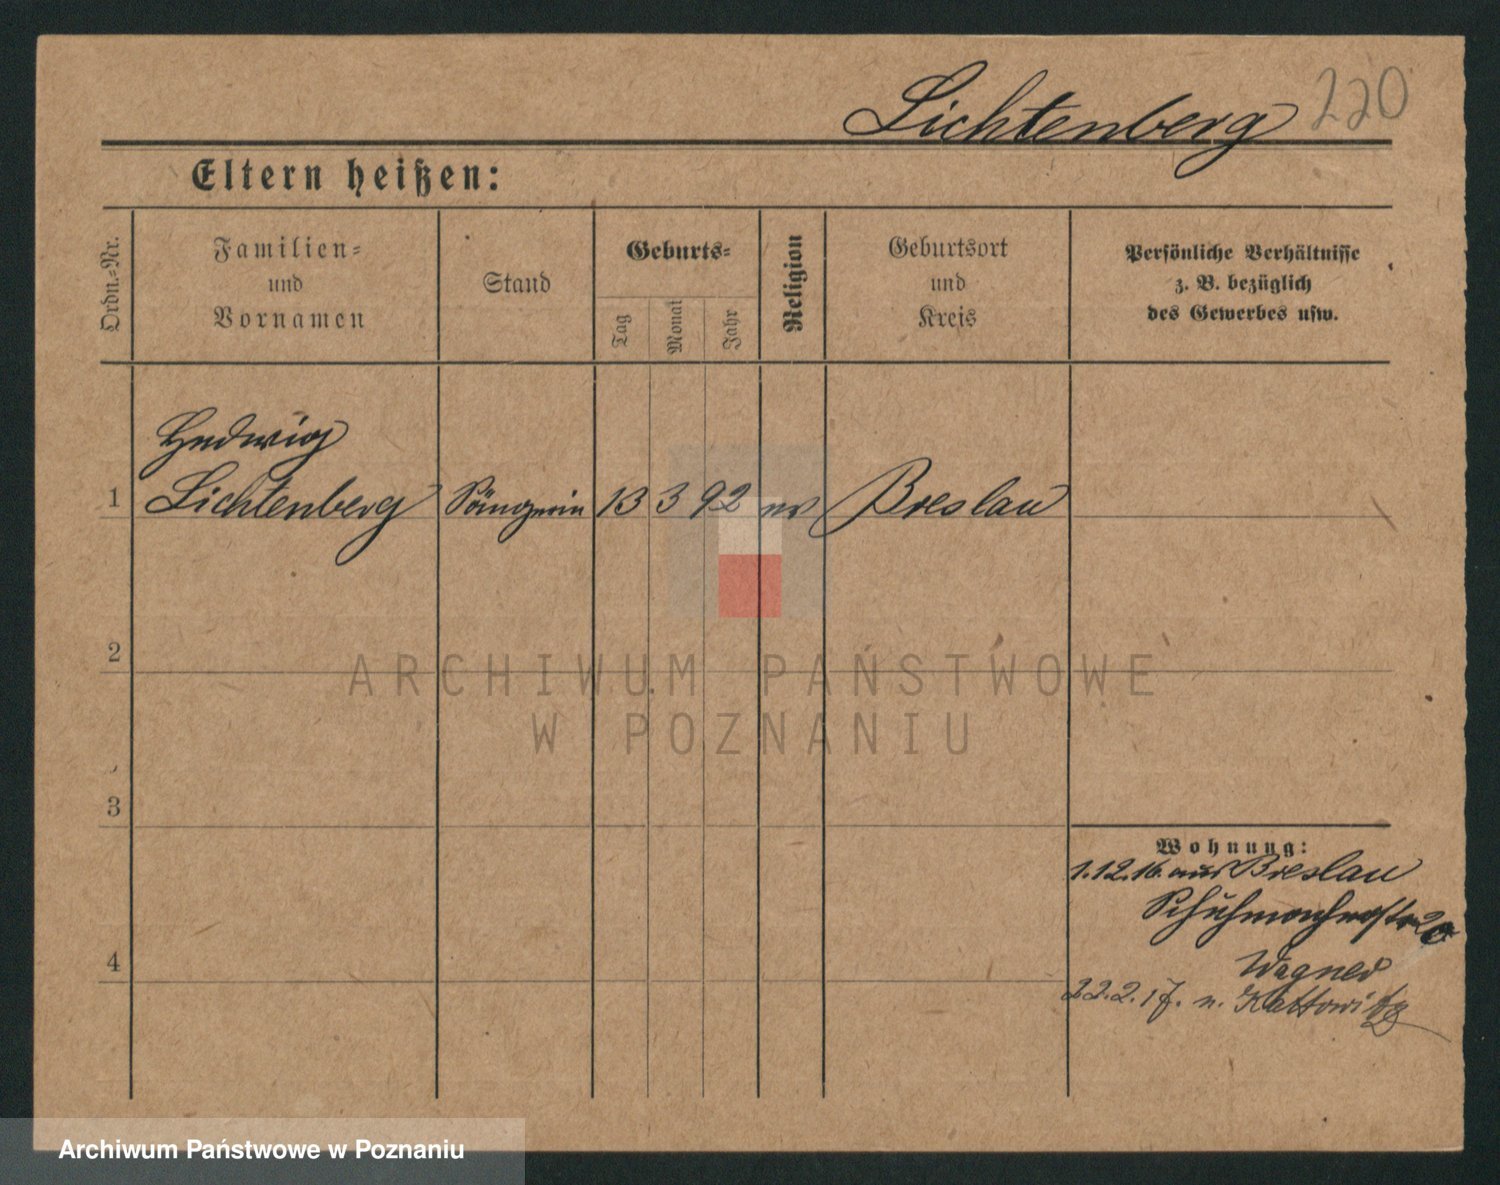 Lichtenberg 220
Eltern heißen:
Ordn.-Nr.
Familien-
und
Vornamen
Stand
Geburts-
Tag
Monat
Jahr
Religion
Geburtsort
und
Kreis
Persönliche Verhältnisse
z. B. bezüglich
des Gewerbes usw.
Hedwig
1 Lichtenberg Sängerin 13 3 92 ev Breslau
2
3
4
Wohnung:
1.12.16. aus Breslau
Schuhmacherstr 20
Wagner
22.2.17. n. Kattowitz
ARCHIWUM PAŃSTWOWE
W POZNANIU
Archiwum Państwowe w Poznaniu